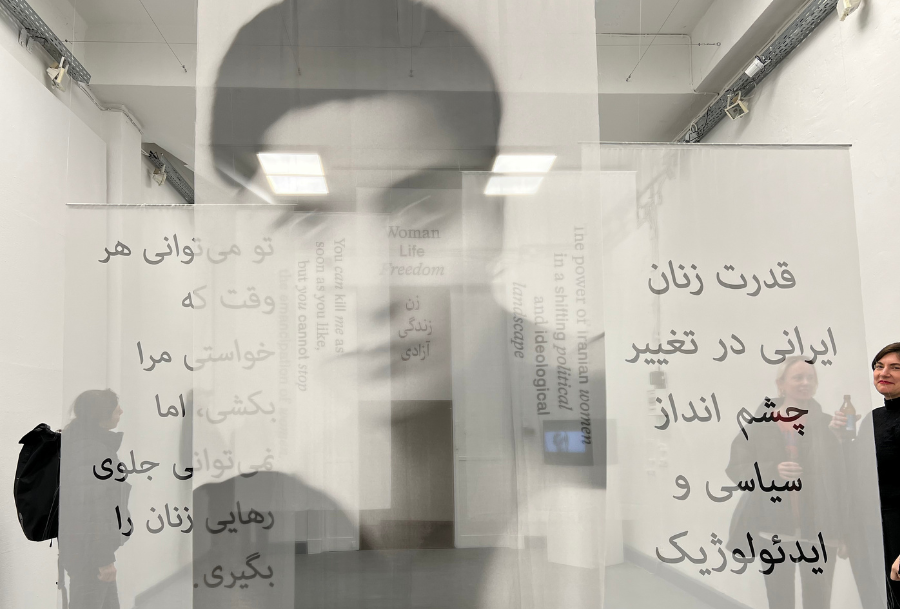 تو می‌توانی هر
وقت که
خواستی مرا
بکشی، اما
نمی‌توانی جلوی
رهایی زنان را
بگیری.
You can kill me as
soon as you like,
but you cannot stop
the emancipation
Woman
Life
Freedom
زن
زندگی
آزادی
the power of Iranian women
in a shifting political
and ideological
landscape
قدرت زنان
ایرانی در تغییر
چشم انداز
سیاسی و
ایدئولوژیک